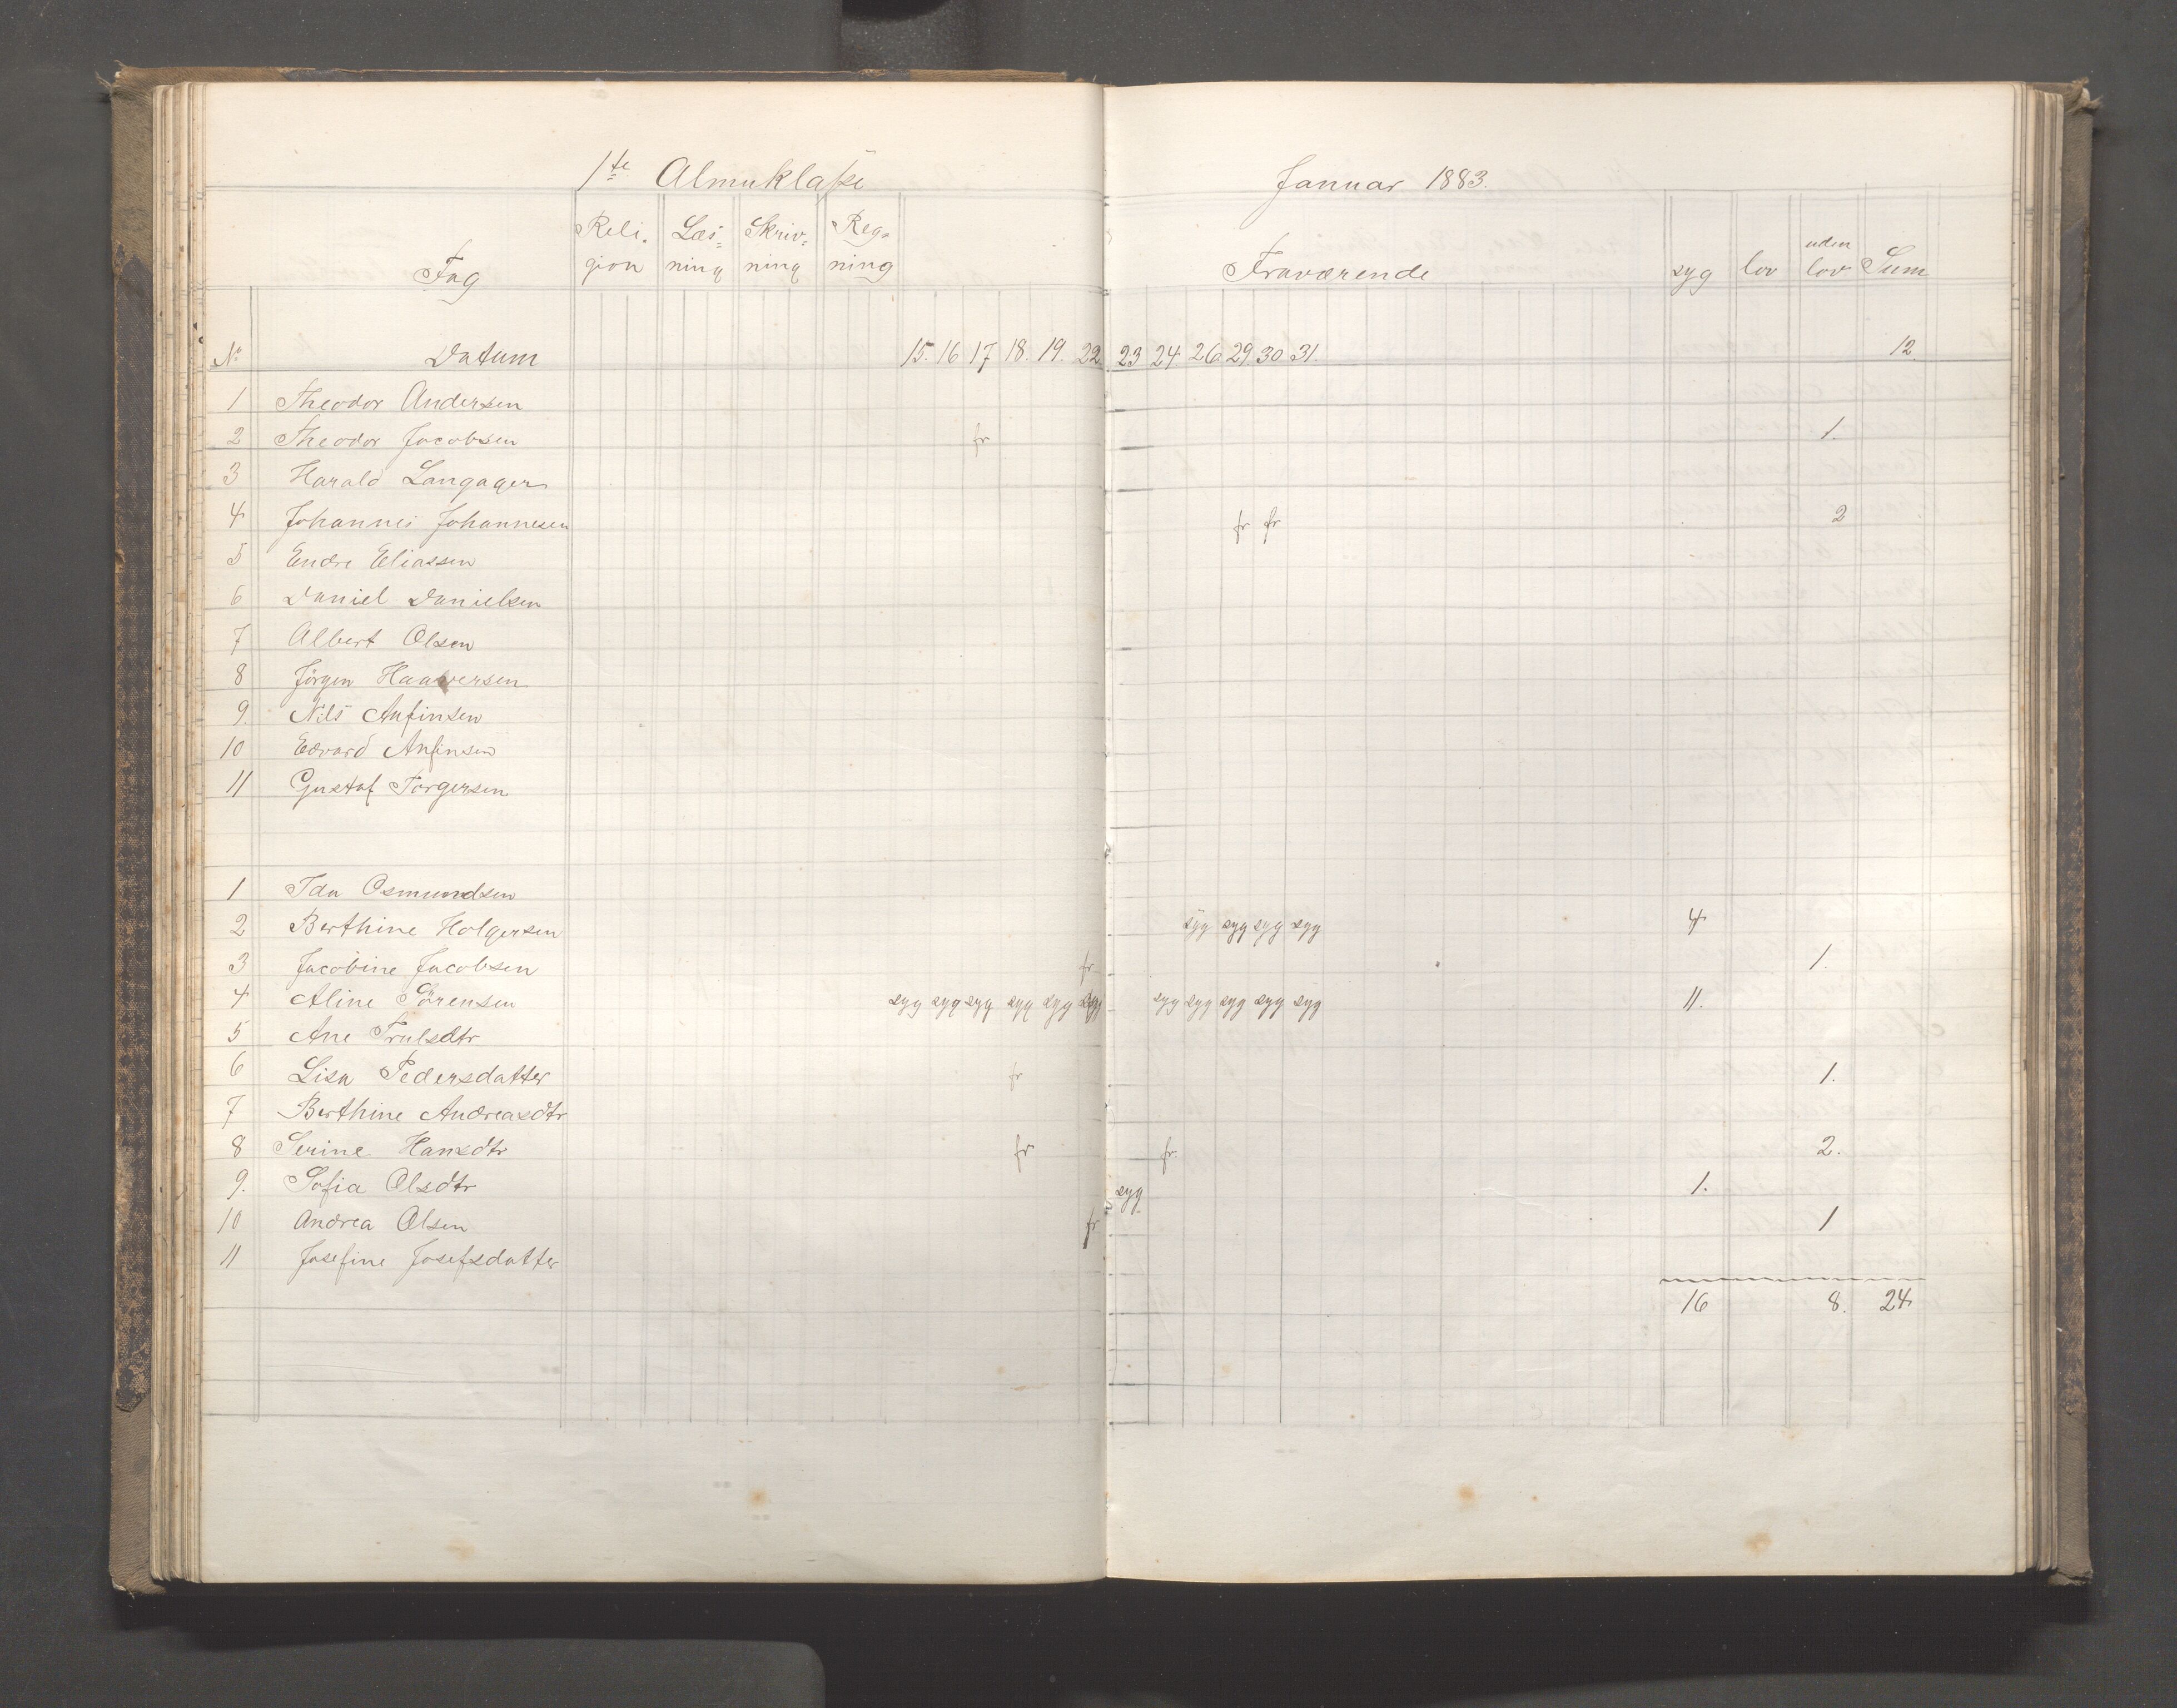 1te Almuklasse Januar 1883.
Fag Reli. Læs= Skriv= Reg= Fraværende syg lov uden lov Sum
gion ning ning ning
No Datum 15. 16 17 18. 19. 22. 23 24. 26 29. 30 31. 12.
1 Theodor Andersen
2 Theodor Jacobsen fr 1.
3 Harald Langager
4 Johannes Johannesen fr fr 2
5 Endre Eliassen
6 Daniel Danielsen
7 Albert Olsen
8 Jörgen Haaversen
9. Nils Anfinsen
10 Edvard Anfinsen
11 Gustaf Torgersen
1 Ida Osmundsen
2 Berthine Holgersen syg syg syg syg 4
3 Jacobine Jacobsen fr 1.
4 Aline Sörensen syg syg syg syg syg syg syg syg syg syg syg 11.
5 Ane Trulsdtr
6 Lisa Pedersdatter fr 1.
7 Berthine Andreasdtr
8 Serine Hansdtr fr fr 2.
9. Sofia Olsdtr syg 1.
10 Andrea Olsen fr 1
11 Josefine Josefsdatter
16 8. 24